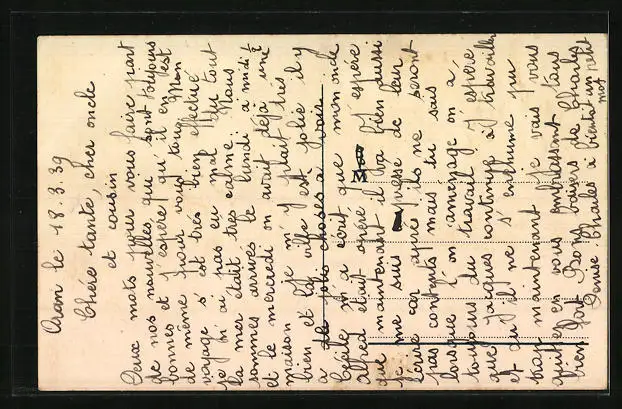 Oran le 18.3.39
Chère tante, cher oncle
et cousin
Deux mots pour vous faire part
de nos nouvelles qui sont toujours
bonnes et j'espère qu'il en est
de même pour vous tous. Mon
voyage s'est très bien effectué
je n'ai pas eu mal du tout
la mer était très calme. Nous
sommes arrivés le lundi à midi ½
et le mercredi on avait déjà une
maison je m'y plait très
bien et la ville est jolie il y
a de jolies choses à voir.
Cécile m'a écrit que mon oncle
Alfred était opéré j'espère
que maintenant il va bien aussi
je me suis pressée de leur
écrire car après ils ne seront
pas contents mais tu sais
lorsque l'on aménage on a
toujours du travail j'espère
que Jacques continue à travailler
et qu'il ne s'enrhume pu
trop maintenant je vais vous
quitter en vous embrassant tous
bien fort Bons baisers de Charles
Denise Charles à bientôt un petit
mot